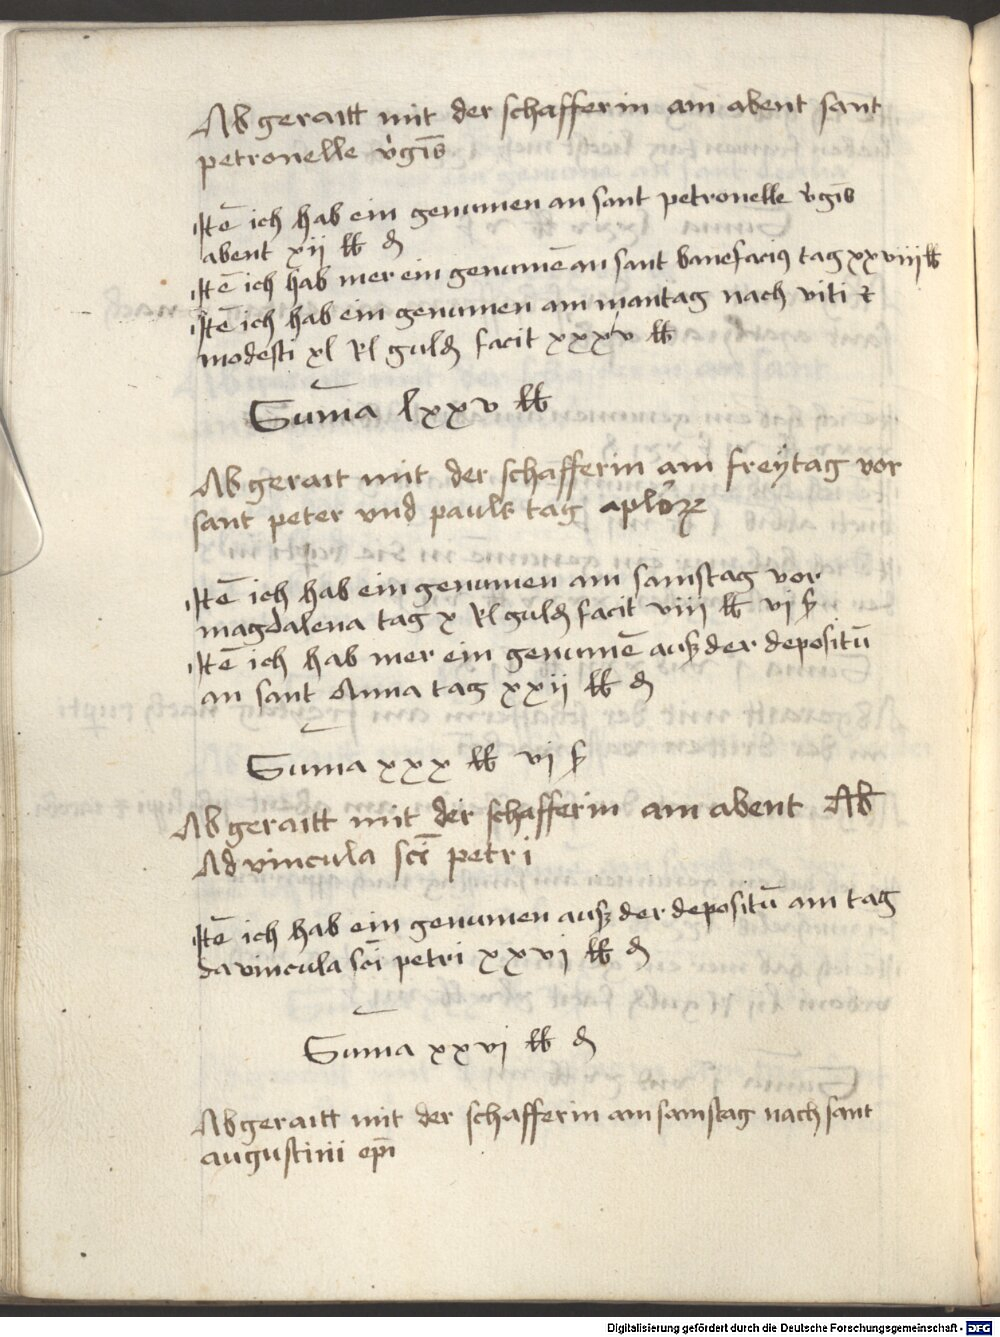 Abgeraitt mit der schafferin am abent sant
petronelle v̓gīs
Itē ich hab ein genumen an sant petronelle v̓gīs
abent xii lb ₰
Itē ich hab mer ein genumē an sant bonefaciꝰ tag xxviii lb
Itē ich hab ein genumen am montag nach viti ⁊
modesti xl Rl guld facit xxxv lb
Suma lxxv lb
Abgerait mit der schafferin am freÿtag vor
sant peter vnd pauls tag aplōꝝ
Itē ich hab ein genumen am samstag vor
magdalena tag x Rl guld facit viii lb vi ß
Itē ich hab mer ein genumē ausz der depositū
an sant Anna tag xxii lb ₰
Suma xxx lb vi ß
Abgeraitt mit der schafferin am abent Ab
Advincula scī petri
Itē ich hab ein genumen ausz der depositū am tag
da vincula scī petri xxvi lb ₰
Suma xxvi lb ₰
Abgeraitt mit der schafferin am samstag nach sant
augustini ep̄i
Digitalisierung gefördert durch die Deutsche Forschungsgemeinschaft - DFG